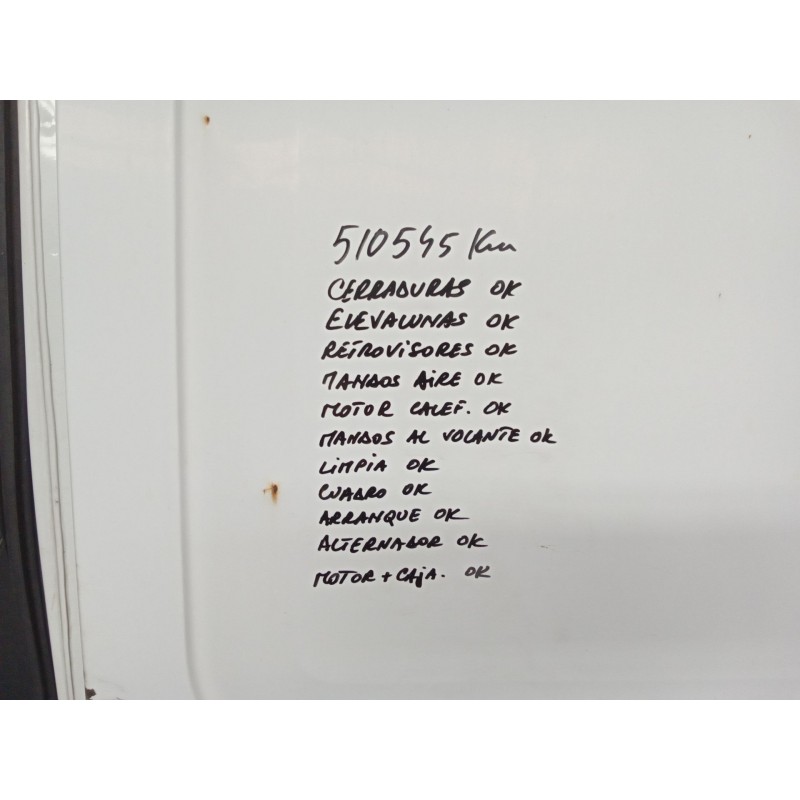 510545 Km
CERRADURAS OK
ELEVALUNAS OK
RETROVISORES OK
MANDOS AIRE OK
MOTOR CALEF. OK
MANDOS AL VOLANTE OK
LIMPIA OK
CUADRO OK
ARRANQUE OK
ALTERNADOR OK
MOTOR + CAJA. OK